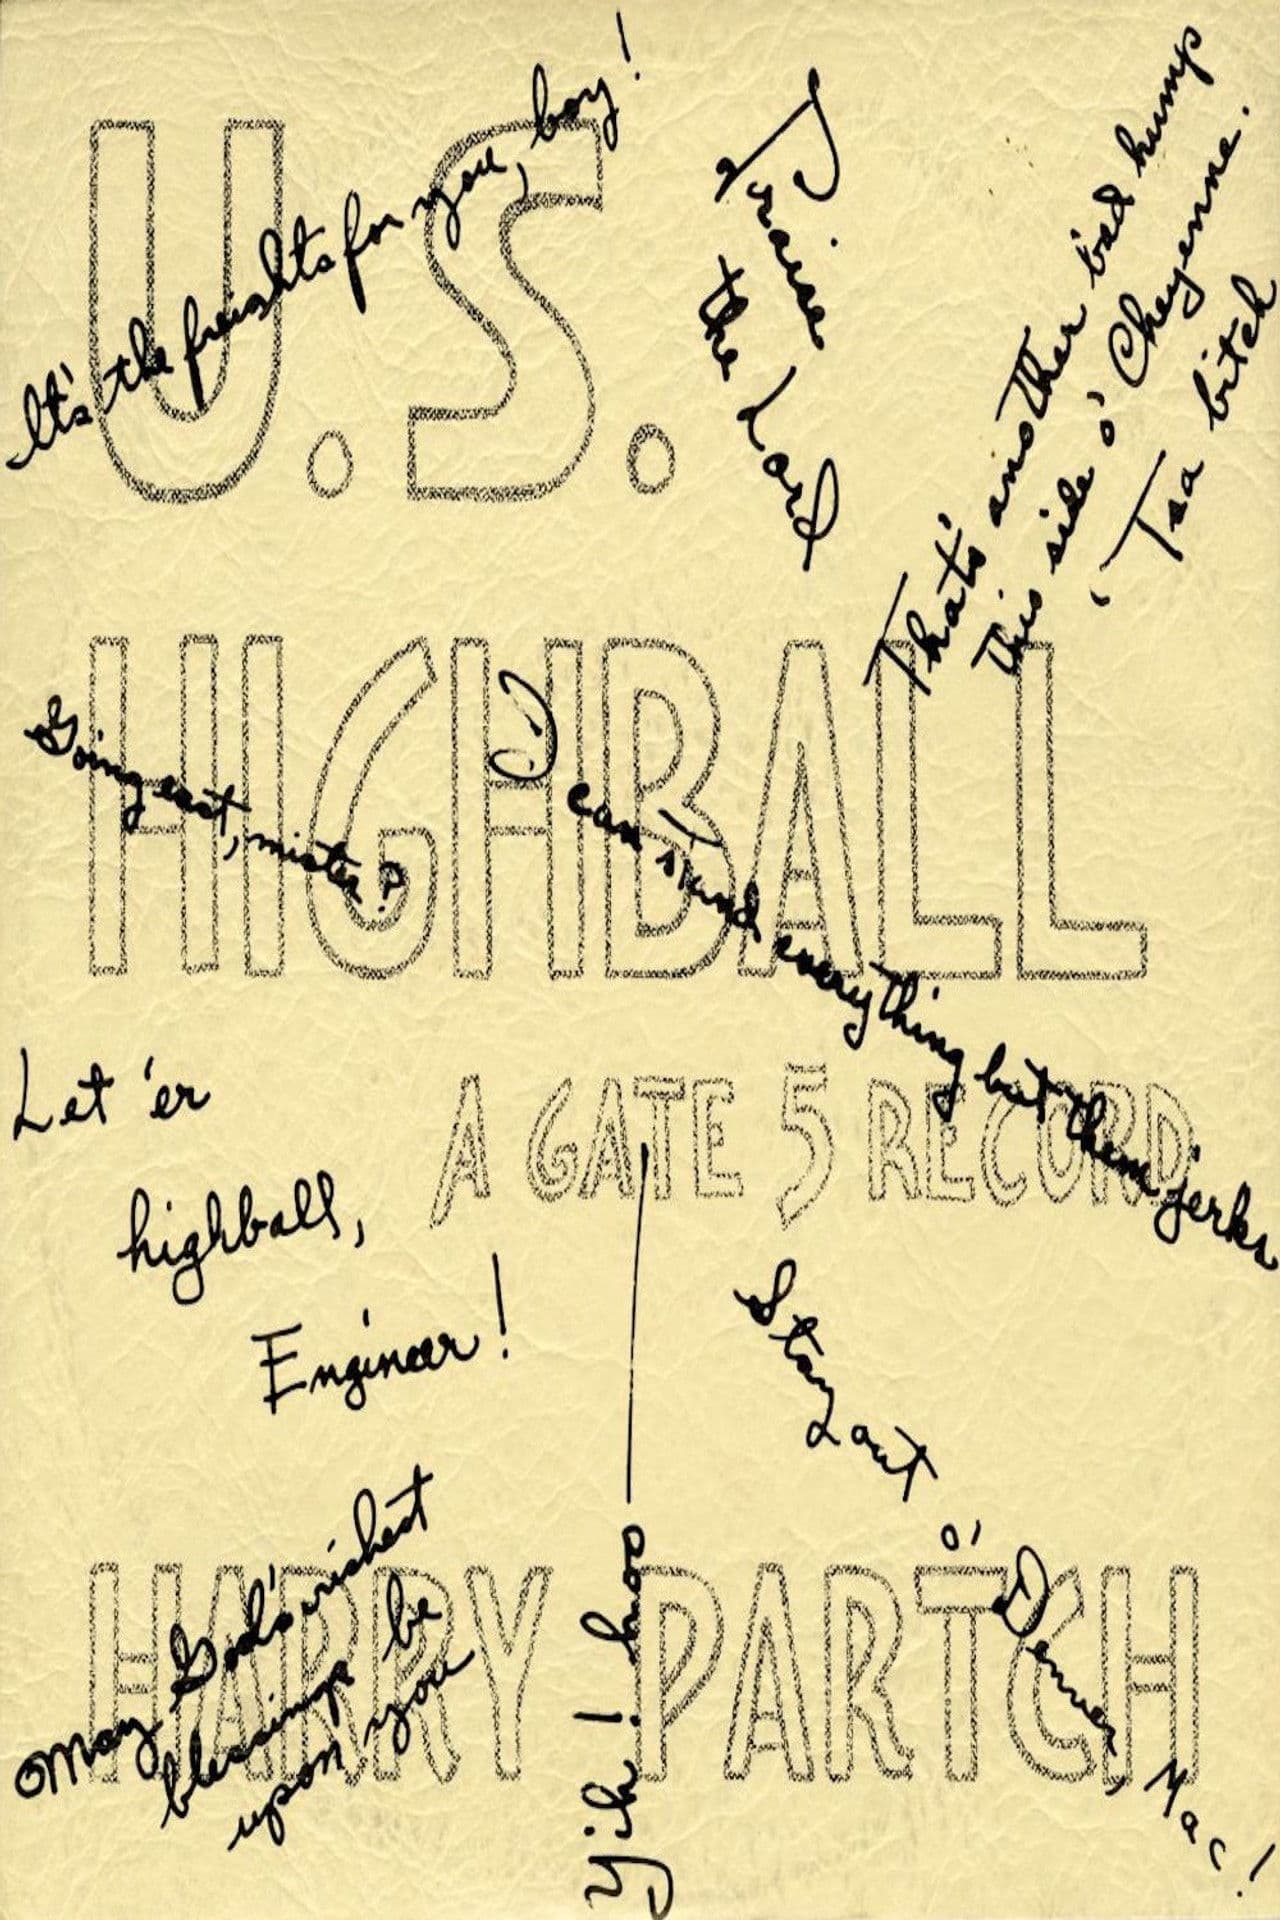 It's the freights for you, boy!
Praise
the Lord
That's another bad hump
this side o' Cheyenne.
'Tsa bitch
U.S.
HIGHBALL
Going east, mister?
I can stand everything but them jerks
A GATE 5 RECORD
Let 'er
highball,
Engineer!
Stay out o' Denver, Mac!
May God's richest
blessings be
upon you
Yih! hoo
HARRY PARTCH